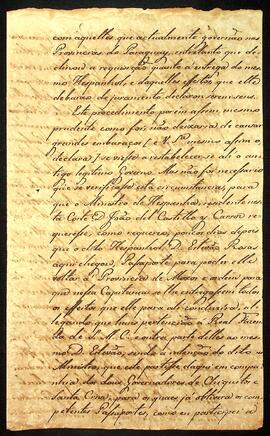 com aquelles, que actualmente governão nas
Provincias do Paraguay, entretanto que de-
clinou a requisição quanto á entrega do mes-
mo Hespanhol, e daquelles effeitos que elle
debaixo de juramento declarou serem seus.
Este procedimento, em si mesmo
prudente como foi, não deixaria de causar
grandes embaraços (e V. S.ª mesmo assim o
declara) se viesse a restabelecer-se ali o an-
tigo legitimo Governo. Mas não foi necessario
que se verificasse esta circunstancia para
que o Ministro de Hespanha, residente nesta
Corte D. João del Castillo y Carroz re-
queresse, como requereo, poucos dias depois
que o dito Hespanhol D. Estevão Rosas
aqui chegou, Passaporte para poder elle
voltar á Provincia de Moxos e ordem para
que nessa Capitania se lhe entregassem todos
os effeitos que elle para ali conduzira, al-
legando que huns pertencião á Real Fazen-
da de S. M. C. e outra parte delles ao mes-
mo D. Estevão, sendo a intenção do dito
Ministro, que este partisse daqui em compa-
nhia dos dous Governadores de Chiquitos e
Santa Cruz, para os quaes ja obtivera os com-
petentes Passaportes, como eu participei a